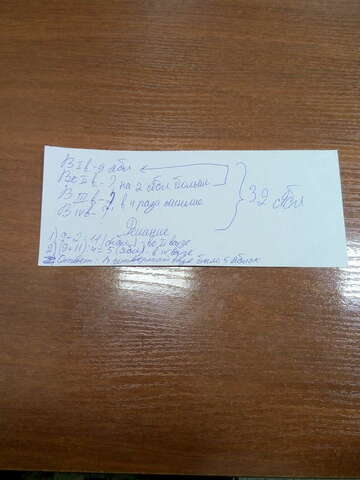 В I в - 9 ябл
Во II в - ?, на 2 ябл больше
В III в - ?
В IV в - ?, в 4 раза меньше
32 ябл
Решение
1) 9 + 2 = 11 (ябл) - во II вазе
2) (9+11) : 4 = 5 (ябл) - в IV вазе
Ответ: в четвертой вазе было 5 яблок